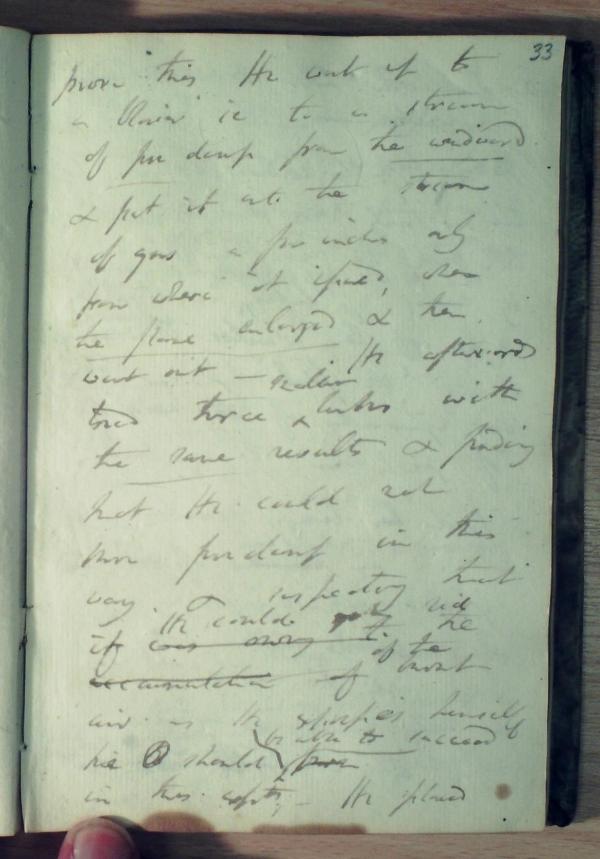 33
prove this He went up to
a Blower ie to a stream
of fire damp from the windward
& put it into the stream
of gas a few inches only
from where it issued, when
the flame enlarged & then
went out — He afterwards
tried twice with
the same results & finding
that He could not
burn firedamp in this
way & suspecting that
if He could get rid
was owing to the
of the
accumulation of burnt
air as He expresses himself
be able to succeed
he should burn
in this — He placed